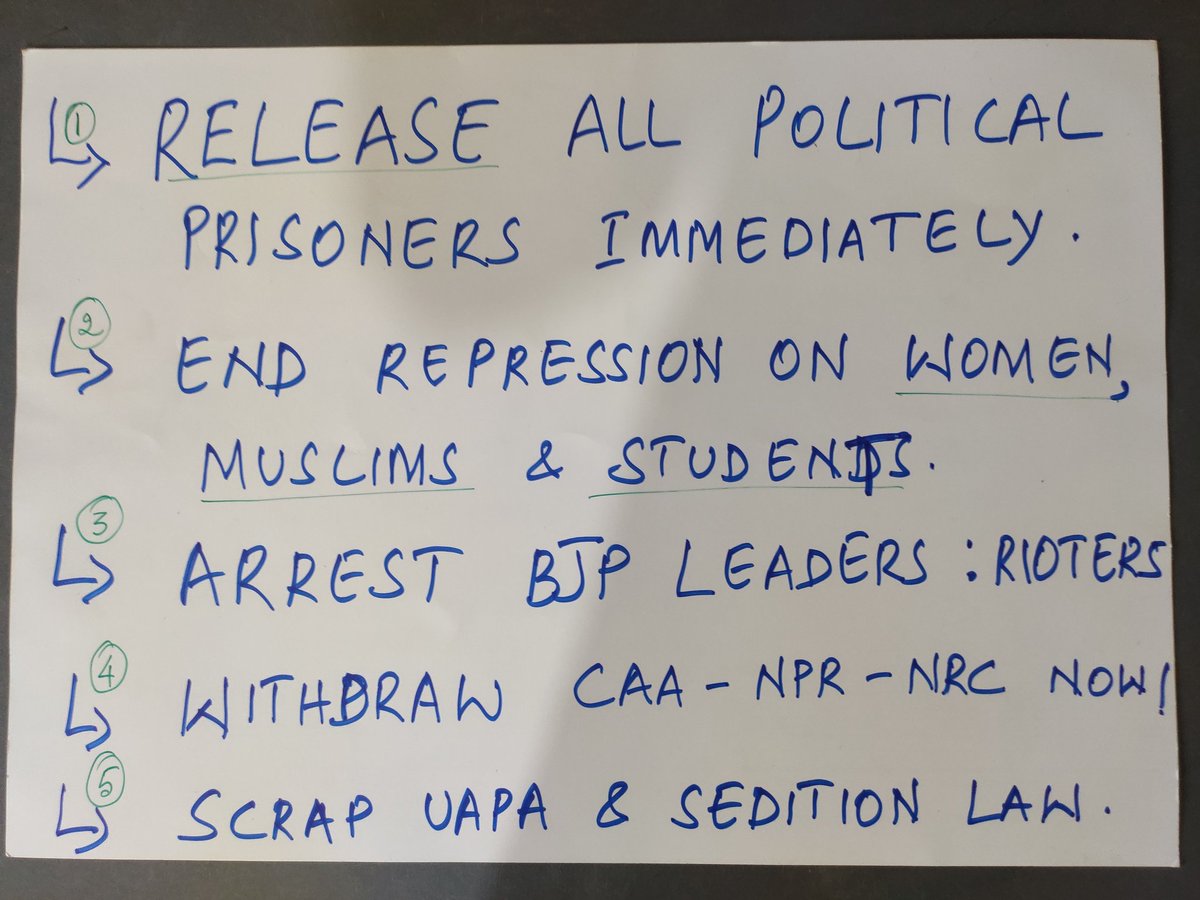 ① RELEASE ALL POLITICAL
PRISONERS IMMEDIATELY.
② END REPRESSION ON WOMEN,
MUSLIMS & STUDENTS.
③ ARREST BJP LEADERS : RIOTERS
④ WITHDRAW CAA - NPR - NRC NOW!
⑤ SCRAP UAPA & SEDITION LAW.